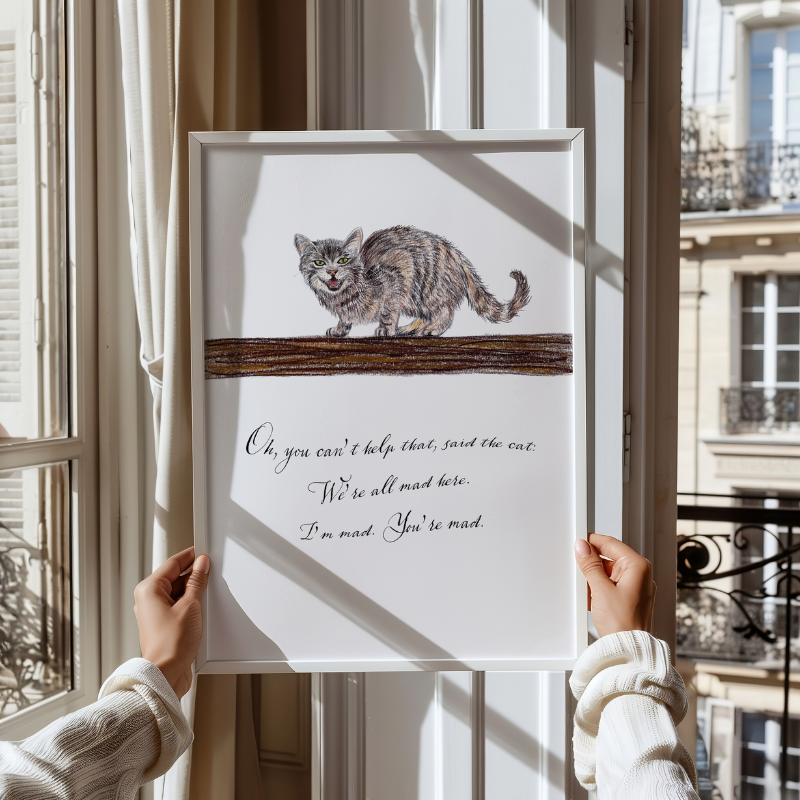 Oh, you can't help that, said the cat:
We're all mad here.
I'm mad. You're mad.